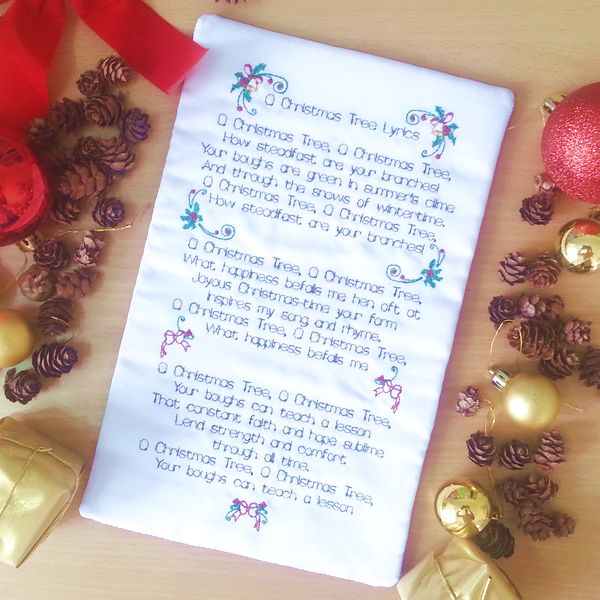 O Christmas Tree Lyrics
O Christmas Tree, O Christmas Tree,
How steadfast are your branches!
Your boughs are green in summer's clime
And through the snows of wintertime.
O Christmas Tree, O Christmas Tree,
How steadfast are your branches!
O Christmas Tree, O Christmas Tree,
What happiness befalls me hen oft at
Joyous Christmas-time your form
Inspires my song and rhyme.
O Christmas Tree, O Christmas Tree,
What happiness befalls me
O Christmas Tree, O Christmas Tree,
Your boughs can teach a lesson
That constant faith and hope sublime
Lend strength and comfort
through all time.
O Christmas Tree, O Christmas Tree,
Your boughs can teach a lesson